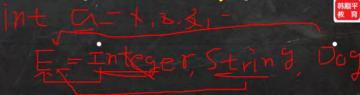 int a = 1, 2, 3, -
E = Integer, String, Dog
韩顺平
教育